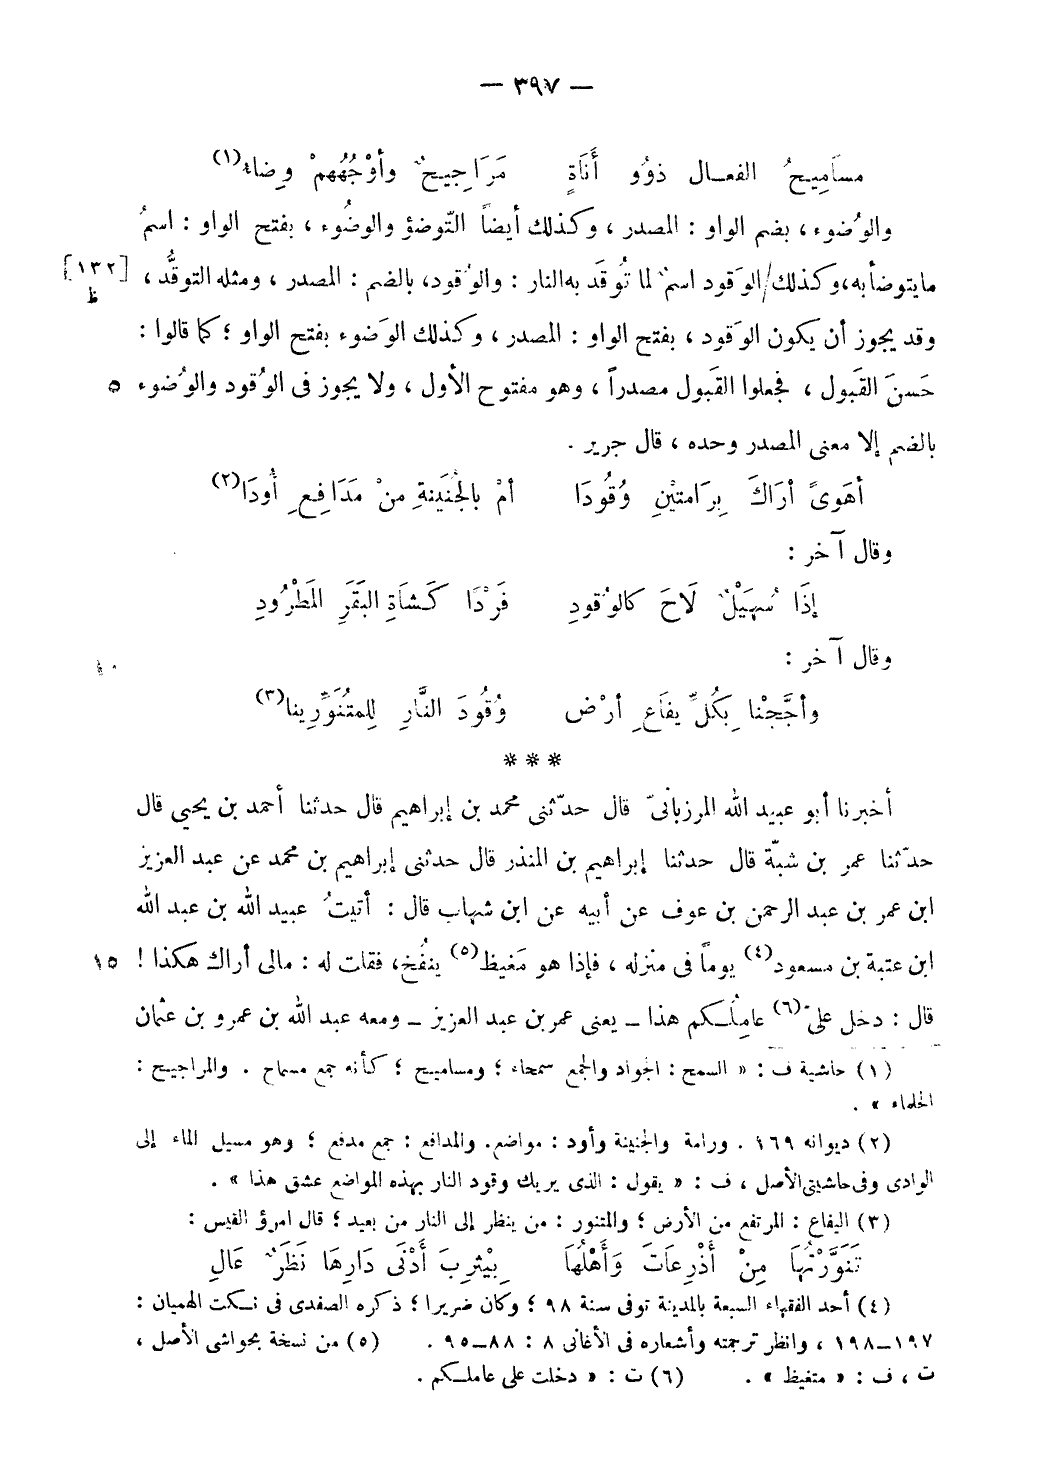 — ٣٩٧ —
مسامِيحُ الفعــال ذوُو أَنَاةٍ مَرَاجِيحٌ وأوْجُهُهمْ وِضاء(١)
والوُضوء، بضم الواو : المصدر ، وكذلك أيضاً التّوضؤ والوضُوء ، بفتح الواو : اسمُ
مايتوضأ به، وكذلك/الوَقود اسمٌ لما تُوقَد به النار : والوُقود، بالضم : المصدر ، ومثله التوقُّد ، [١٣٢ ظ]
وقد يجوز أن يكون الوَقود ، بفتح الواو : المصدر ، وكذلك الوَضوء بفتح الواو ؛ كما قالوا :
حَسنَ القَبول ، فجعلوا القَبول مصدراً ، وهو مفتوح الأول ، ولا يجوز فى الوُقود والوُضوء ٥
بالضم إلا معنى المصدر وحده ، قال جرير .
أهَوىً أرَاكَ بِرَامتيْنِ وُقُودَا أمْ بالجُنَينةِ مِنْ مَدَافِعِ أُودَا(٢)
وقال آخر :
إذَا سُهَيْلٌ لَاحَ كالوُقودِ فَرْدًا كَشَاةِ البَقَرِ المَطْرُودِ
وقال آخر : ١٠
وأجَّجْنا بِكُلِّ يفَاعِ أرْض وُقُودَ النَّارِ لِلمتُنَوِّرِينا(٣)
* * *
أخبرنا أبو عبيد الله المرزبانىّ قال حدّثنى محمد بن إبراهيم قال حدثنا أحمد بن يحيى قال
حدّثنا عمر بن شبّة قال حدثنا إبراهيم بن المنذر قال حدثنى إبراهيم بن محمد عن عبد العزيز
ابن عمر بن عبد الرحمن بن عوف عن أبيه عن ابن شهاب قال : أتيتُ عبيد الله بن عبد الله
ابن عتبة بن مسعود(٤) يوماً فى منزله ، فإذا هو مَغيظ(٥) ينفُخ، فقلت له : مالى أراك هكذا ! ١٥
قال : دخل علىّ(٦) عامِلُــكم هذا ــ يعنى عمر بن عبد العزيز ــ ومعه عبد الله بن عمرو بن عثمان
(١) حاشية ف : « السمح : الجواد والجمع سمحاء ؛ ومساميح ؛ كأنه جمع مسماح . والمراجيح :
الحلماء » .
(٢) ديوانه ١٦٩ . ورامة والجنينة وأود : مواضع. والمدافع : جمع مدفع ؛ وهو مسيل الماء إلى
الوادى وفى حاشيتى الأصل ، ف : « يقول : الذى يريك وقود النار بهذه المواضع عشق هذا » .
(٣) اليفاع : المرتفع من الأرض ؛ والمتنور : من ينظر إلى النار من بعيد ؛ قال امرؤ القيس :
تَنَوَّرْتُهَا مِنْ أَذْرِعَاتَ وَأَهْلُهَا بِيَثْرِبَ أَدْنَى دَارِهَا نَظَرٌ عَالِ
(٤) أحد الفقهاء السبعة بالمدينة توفى سنة ٩٨ ؛ وكان ضريرا ؛ ذكره الصفدى فى نكت الهميان :
١٩٧ــ١٩٨ ، وانظر ترجمته وأشعاره فى الأغانى ٨ : ٨٨ــ٩٥ . (٥) من نسخة بحواشى الأصل ،
ت ، ف : « متغيظ » . (٦) ت : « دخلت على عاملــكم .